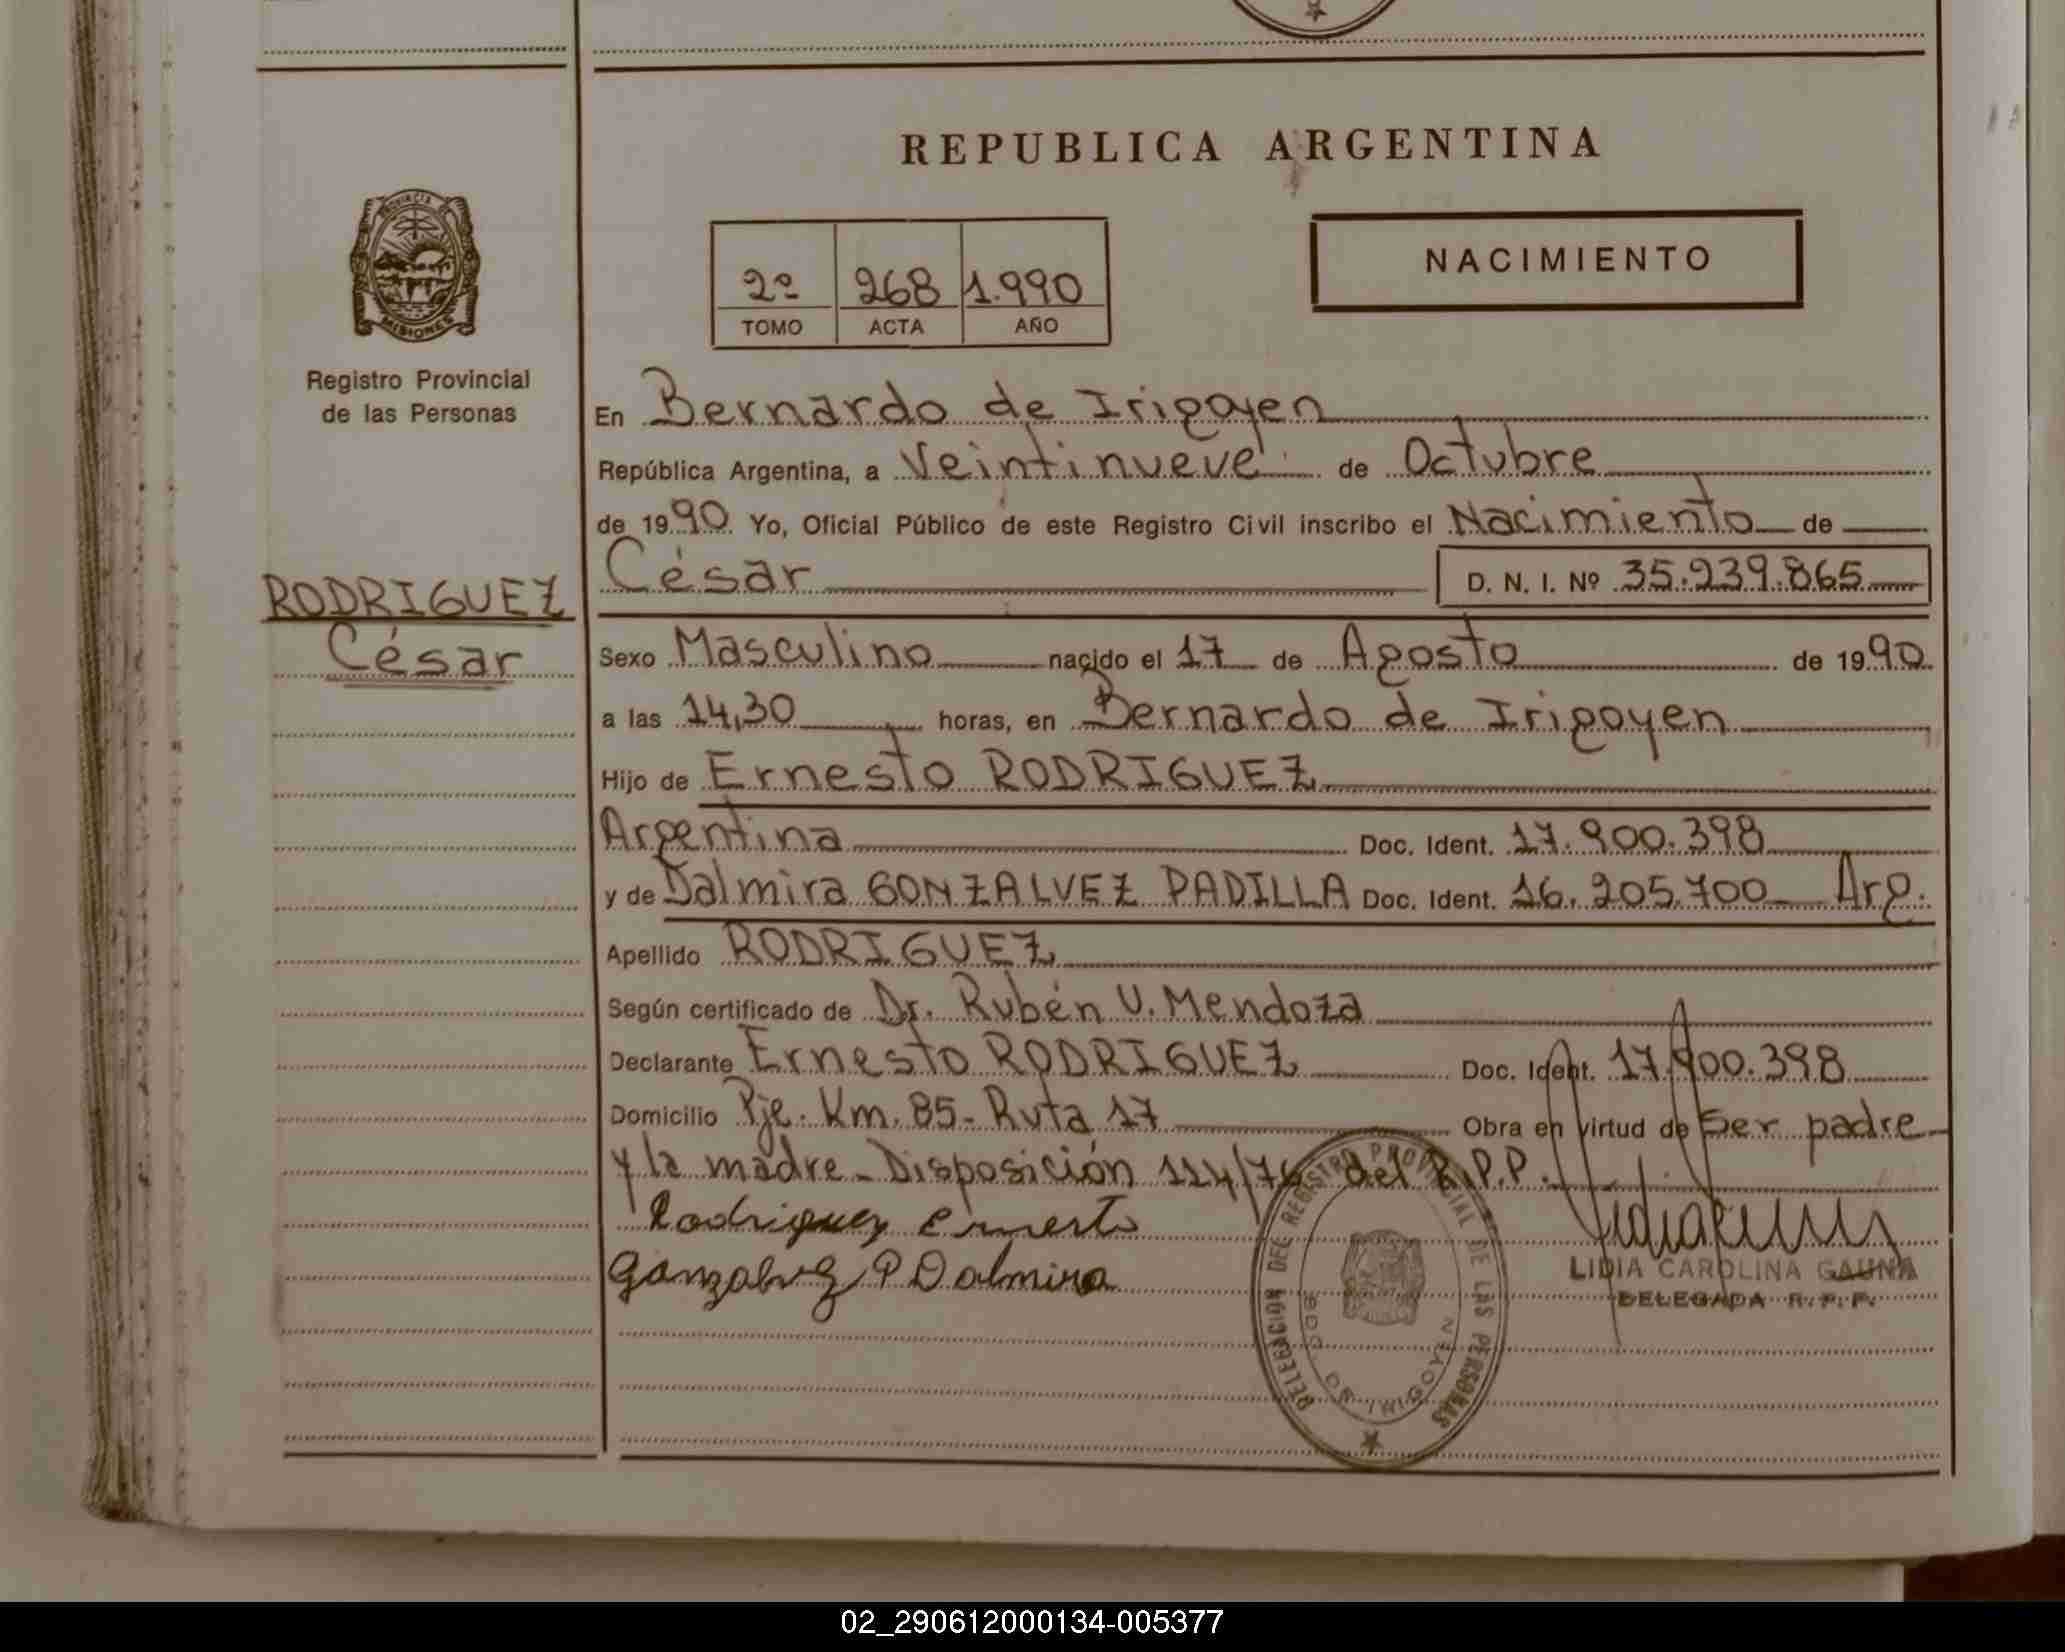 REPUBLICA ARGENTINA
PROVINCIA DE
MISIONES
Registro Provincial
de las Personas
2º 268 1.990
TOMO ACTA AÑO
NACIMIENTO
En Bernardo de Irigoyen
República Argentina, a Veintinueve de Octubre
de 1990 Yo, Oficial Público de este Registro Civil inscribo el Nacimiento de
César D. N. I. Nº 35.239.865
RODRIGUEZ
César
Sexo Masculino nacido el 17 de Agosto de 1990
a las 14,30 horas, en Bernardo de Irigoyen
Hijo de Ernesto RODRIGUEZ
Argentina Doc. Ident. 17.900.398
y de Dalmira GONZALVEZ PADILLA Doc. Ident. 16.205.700 Arg.
Apellido RODRIGUEZ
Según certificado de Dr. Rubén V. Mendoza
Declarante Ernesto RODRIGUEZ Doc. Ident. 17.900.398
Domicilio Pje. Km. 85- Ruta 17 Obra en virtud de Ser padre
y la madre- Disposición 114/76 del R.P.P.
Rodriguez Ernesto
Gonzalvez P Dalmira
DELEGACION DEL REGISTRO PROVINCIAL DE LAS PERSONAS
BDO DE IRIGOYEN
LIDIA CAROLINA GAUNA
DELEGADA R. P. P.
02_290612000134-005377